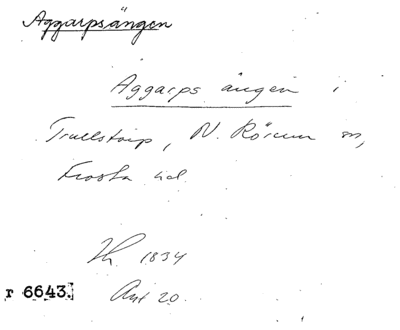 Aggarpsängen
Aggarps ängen i
Trullstorp, N. Rörum sn,
Frosta hd
1834
r 6643. Akt 20.